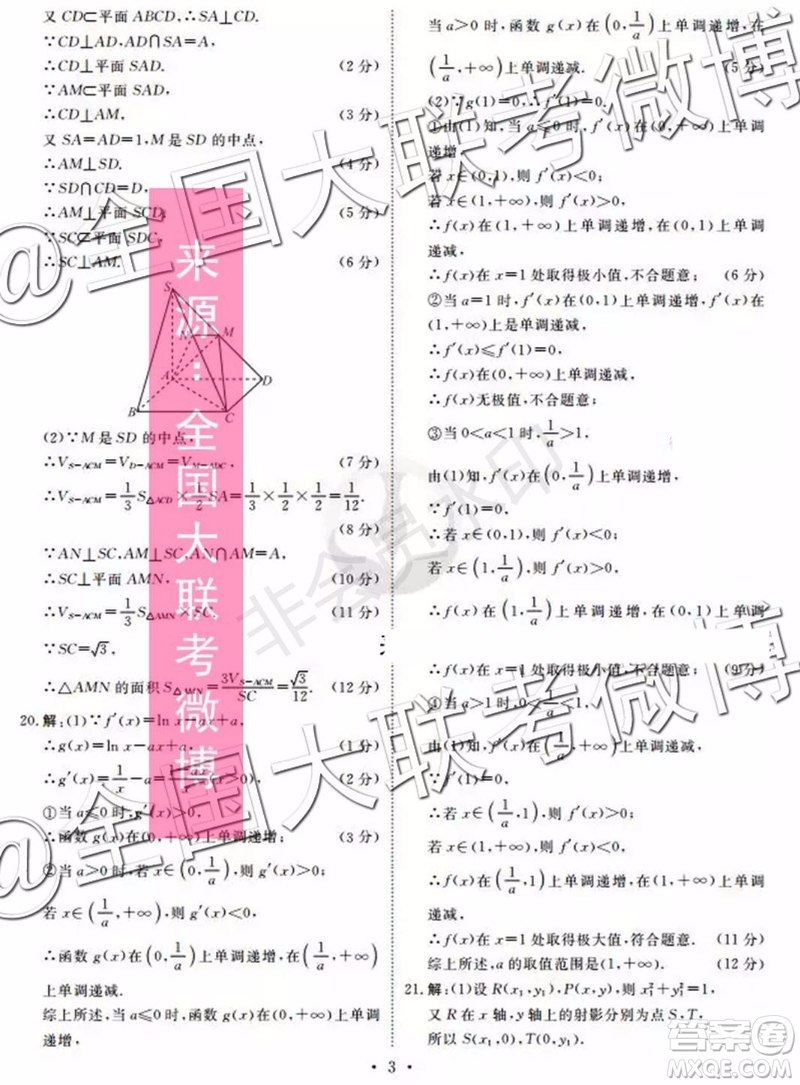 又CD⊂平面ABCD,∴SA⊥CD.
∵CD⊥AD,AD∩SA=A,
∴CD⊥平面SAD. (2分)
∵AM⊂平面SAD.
∴CD⊥AM, (3分)
又SA=AD=1,M是SD的中点,
∴AM⊥SD. (4分)
∵SD∩CD=D,
∴AM⊥平面SCD. (5分)
∵SC⊂平面SDC,
∴SC⊥AM. (6分)
S
M
A
D
B
C
(2)∵M是SD的中点,
∴V_{S-ACM}=V_{D-ACM}=V_{M-ADC}. (7分)
∴V_{S-ACM}=1/3 S_{△ACD}×1/2 SA=1/3×1/2×1/2=1/12.
(8分)
∵AN⊥SC,AM⊥SC,AN∩AM=A,
∴SC⊥平面AMN. (10分)
∴V_{S-ACM}=1/3 S_{△AMN}×SC. (11分)
∵SC=√3,
∴△AMN的面积S_{△AMN}=3V_{S-ACM}/SC=√3/12. (12分)
20.解:(1)∵f′(x)=ln x-ax+a,
∴g(x)=ln x-ax+a, (1分)
∴g′(x)=1/x-a=(1-ax)/x(x>0). (2分)
①当a≤0时,g′(x)>0,
∴函数g(x)在(0,+∞)上单调递增; (3分)
②当a>0时,若x∈(0,1/a),则g′(x)>0;
若x∈(1/a,+∞),则g′(x)<0,
∴函数g(x)在(0,1/a)上单调递增,在(1/a,+∞)
上单调递减.
综上所述,当a≤0时,函数g(x)在(0,+∞)上单调
递增,
当a>0时,函数g(x)在(0,1/a)上单调递增,在
(1/a,+∞)上单调递减. (5分)
(2)∵g(1)=0,∴f′(1)=0.
①由(1)知,当a≤0时,f′(x)在(0,+∞)上单调
递增,
若x∈(0,1),则f′(x)<0;
若x∈(1,+∞),则f′(x)>0,
∴f(x)在(1,+∞)上单调递增,在(0,1)上单调
递减,
∴f(x)在x=1处取得极小值,不合题意; (6分)
②当a=1时,f′(x)在(0,1)上单调递增,f′(x)在
(1,+∞)上是单调递减,
∴f′(x)≤f′(1)=0,
∴f(x)在(0,+∞)上单调递减,
∴f(x)无极值,不合题意;
③当0<a<1时,1/a>1,
由(1)知,f′(x)在(0,1/a)上单调递增,
∵f′(1)=0,
∴若x∈(0,1),则f′(x)<0;
若x∈(1,1/a),则f′(x)>0,
∴f(x)在(1,1/a)上单调递增,在(0,1)上单调
∴f(x)在x=1处取得极小值,不合题意; (9分)
④当a>1时,0<1/a<1,
由(1)知,f′(x)在(1/a,+∞)上单调递减,
∵f′(1)=0,
∴若x∈(1/a,1),则f′(x)>0;
若x∈(1,+∞),则f′(x)<0,
∴f(x)在(1/a,1)上单调递增,在(1,+∞)上单调
递减,
∴f(x)在x=1处取得极大值,符合题意. (11分)
综上所述,a的取值范围是(1,+∞). (12分)
21.解:(1)设R(x₁,y₁),P(x,y),则x₁²+y₁²=1,
又R在x轴,y轴上的射影分别为点S,T,
所以S(x₁,0),T(0,y₁).
• 3 •
来源:全国大联考微博
@全国大联考微博
@全国大联考微博
非会员水印
答案圈
MXQE.COM